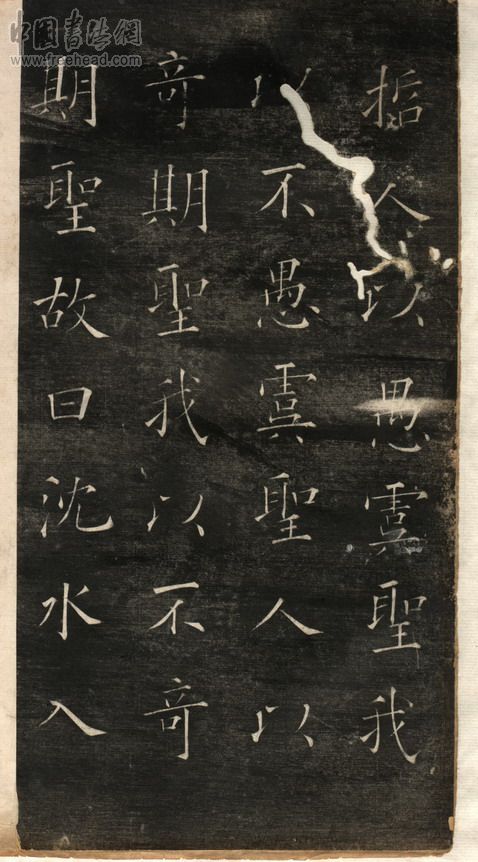 中國書法網
www.freehead.com
哲人以愚虞聖我
以不愚虞聖人以
奇期聖我以不奇
期聖故曰沈水入